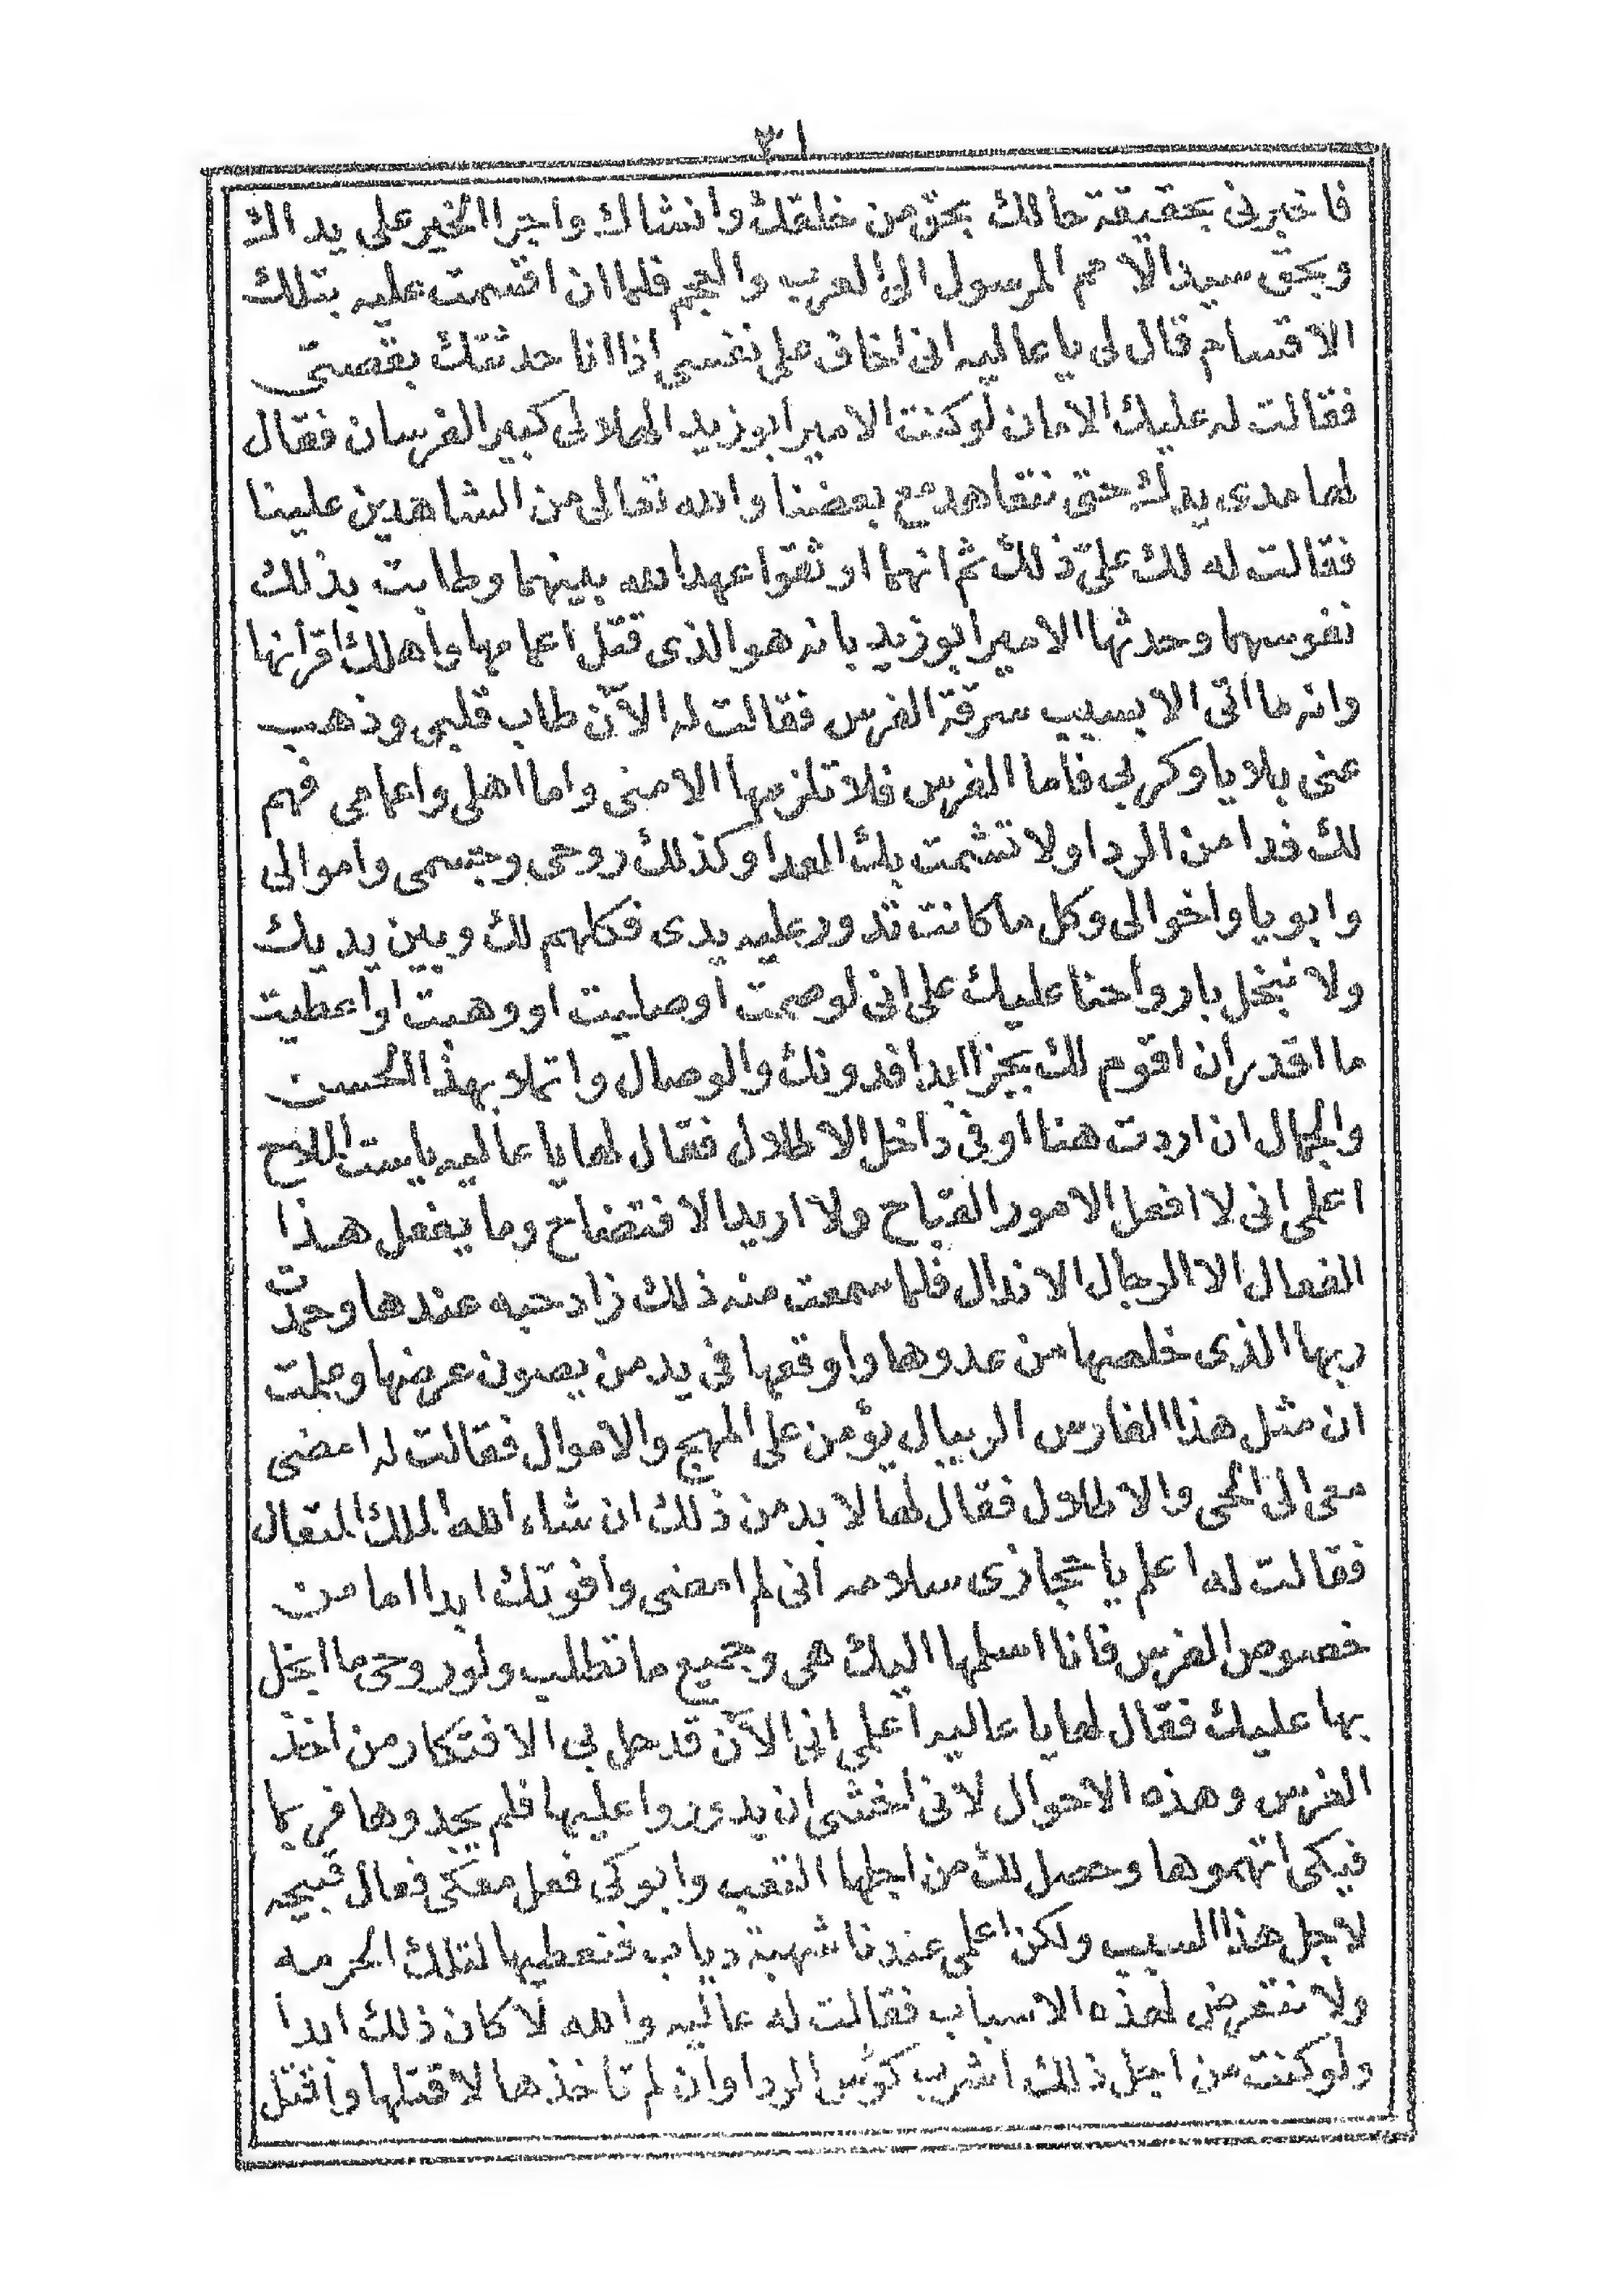 ٣١
فاخبرنى بحقيقة حالك بحق من خلقك وانشاك واجرا الخير على يداك
وبحق سيد الامم المرسول الى العرب والعجم فلما ان اقسمت عليه بتلك
الاقسام قال لى يا عاليه انى اخاف على نفسى اذا انا حدثتك بقصتى
فقالت له عليك الامان لوكنت الامير ابوزيد الهلالى كبير الفرسان فقال
لها مدى يدك حتى نتعاهد مع بعضنا والله تعالى من الشاهدين علينا
فقالت له لك علىّ ذلك ثم انهما اوثقوا عهد الله بينهما وطابت بذلك
نفوسهما وحدثها الامير ابوزيد بانه هو الذى قتل اعمامها واهلك اقرانها
وانه ما اتى الا بسبب سرقة الفرس فقالت له الآن طاب قلبى وذهب
عنى بلايا وكربى فاما الفرس فلا تلزمها الا منى واما اهلى واعمامى فهم
لك فدا من الردا ولا تشمت بك العدا وكذلك روحى وجسمى واموالى
وابويا واخوالى وكل ما كانت تدور عليه يدى فكلهم لك وبين يديك
ولا نبخل بارواحنا عليك على انى لوصمت اوصليت او وهبت او اعطيت
ما اقدر ان اقوم لك بجزا ابدا فدونك والوصال واتملا بهذا الحسن
والجمال ان اردت هنا او فى داخل الاطلال فقال لها يا عاليه ياست الملاح
اعلمى انى لا افعل الامور القباح ولا اريد الافتضاح وما يفعل هذا
الفعال الا الرجال الاندال فلما سمعت منه ذلك زاد حبه عندها وحمدت
ربها الذى خلصها من عدوها واوقعها فى يد من يصون عرضها وعلمت
ان مثل هذا الفارس الريبال يؤمن على المهج والاموال فقالت له امضى
معى الى الحى والاطلال فقال لها لا بد من ذلك ان شاء الله الملك المتعال
فقالت له اعلم يا حجازى سلامه انى لم امضى وافوتك ابدا اما من
خصوص الفرس فانا اسلمها اليك هى وجميع ما تطلب ولو روحى ما ابخل
بها عليك فقال لها يا عاليه اعلمى انى الآن قد حل بى الافتكار من اخذ
الفرس وهذه الاحوال لانى اخشى ان يدوروا عليها فلم يجدوها فربما
فيكى اتهموها وحصل لك من اجلها التعب وابوكى فعل معكى فعال قبيحه
لاجل هذا السبب ولكن اعلمى عندنا شهبة دياب فنعطيها لتلك الحرمه
ولا نتعرض لهذه الاسباب فقالت له عاليه والله لا كان ذلك ابدا
ولوكنت من اجل ذلك اشرب كؤس الردا وان لم تاخذها لاقتلها واقتل